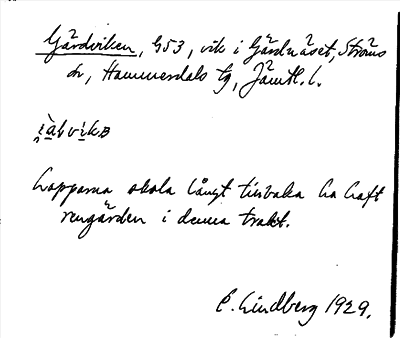 Gärdviken, G53, vik i Gärdnäset, Ströms
sn, Hammerdals tg, Jämtl. l.
Lapparna skola långt tillbaka ha haft
rengärden i denna trakt.
C. Lindberg 1929.